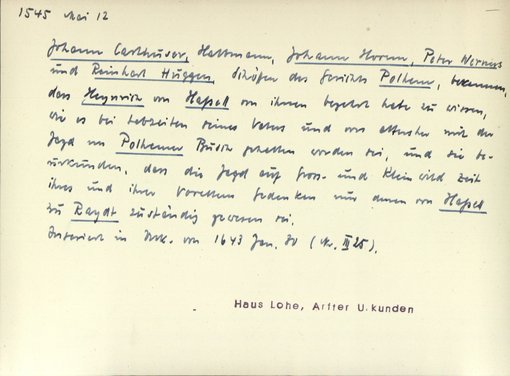 1545 Mai 12
Johann Carthuser, Hattmann, Johann Horrn, Peter Werners
und Reinhart Huggen, Schöfen des Gerichts Polhem, bekennen,
dass Heynrich von Hapell von ihnen begehrt habe zu wissen,
wie es bei Lebzeiten seines Vaters und von altersher mit der
Jagd im Polhemer Busch gehalten worden sei, und sie be-
urkunden, dass die Jagd auf Gross- und Kleinwild zeit
ihres und ihrer Voreltern Gedenken nur denen von Hapell
zu Raydt zuständig gewesen sei.
Inseriert in Urk. von 1643 Jan. 30 (Nr. III 25).
Haus Lohe, Artter U.kunden